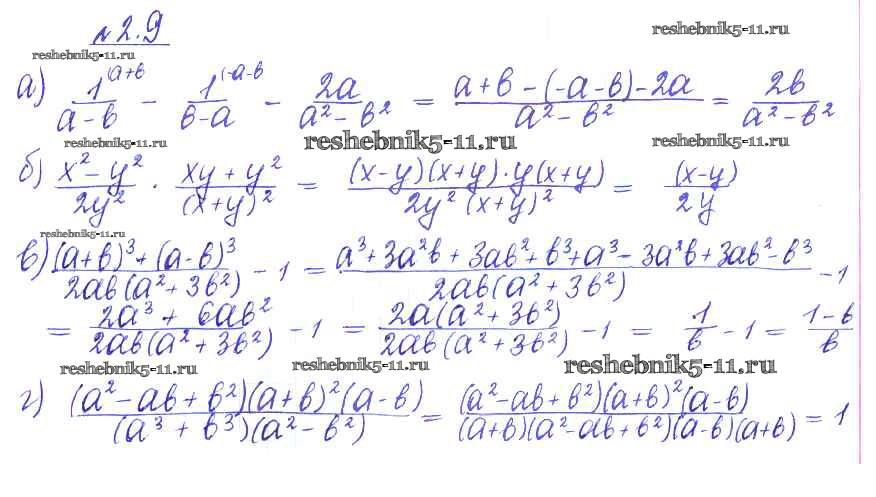 №2.9
reshebnik5-11.ru
reshebnik5-11.ru
а) 1^(a+b / a-b - 1^(-a-b / b-a - 2a / a² - b² = a+b-(-a-b)-2a / a² - b² = 2b / a² - b²
reshebnik5-11.ru
reshebnik5-11.ru
reshebnik5-11.ru
б) x² - y² / 2y² · xy + y² / (x+y)² = (x-y)(x+y)·y(x+y) / 2y² (x+y)² = (x-y) / 2y
reshebnik5-11.ru
в) (a+b)³ + (a-b)³ / 2ab(a² + 3b²) - 1 = a³ + 3a²b + 3ab² + b³ + a³ - 3a²b + 3ab² - b³ / 2ab(a² + 3b²) - 1
= 2a³ + 6ab² / 2ab(a² + 3b²) - 1 = 2a(a² + 3b²) / 2ab(a² + 3b²) - 1 = 1 / b - 1 = 1-b / b
reshebnik5-11.ru
reshebnik5-11.ru
reshebnik5-11.ru
г) (a² - ab + b²)(a+b)² (a-b) / (a³ + b³)(a² - b²) = (a² - ab + b²)(a+b)² (a-b) / (a+b)(a² - ab + b²)(a-b)(a+b) = 1